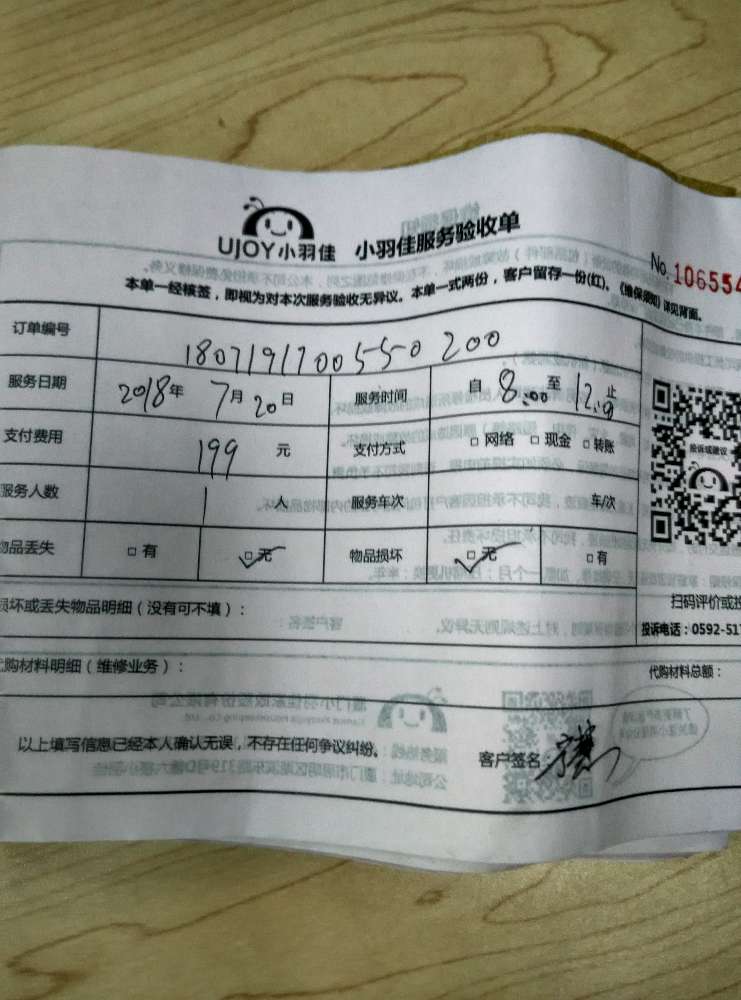 UJOY小羽佳 小羽佳服务验收单
No.106554
本单一经核签，即视为对本次服务验收无异议。本单一式两份，客户留存一份(红)。《维保须知》详见背面。
订单编号 180719170055 0200
服务日期 2018年 7月20日 服务时间 自 8:00 至 12:0 止
支付费用 199 元 支付方式 □网络 □现金 □转账
服务人数 1 人 服务车次 车/次
物品丢失 □有 □无 物品损坏 □无 □有
投诉或建议
扫码评价或投
损坏或丢失物品明细（没有可不填）：
投诉电话：0592-517
代购材料明细（维修业务）：
代购材料总额：
以上填写信息已经本人确认无误，不存在任何争议纠纷。
客户签名：